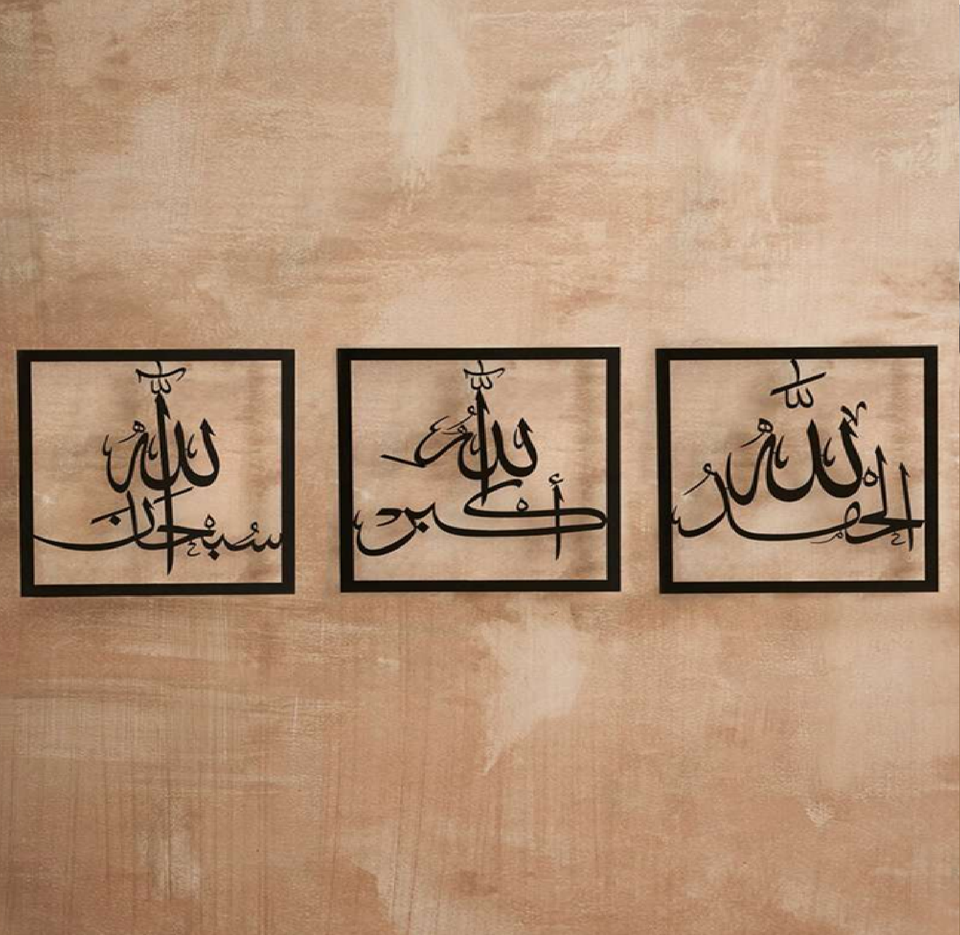 سبحان الله
الله أكبر
الحمد لله